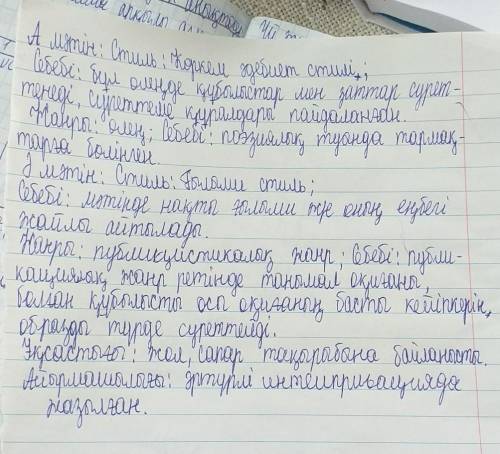 А мәтін: Стиль: Көркем әдебиет стилі;
Себебі: бұл өлеңде құбылыстар мен заттар сурет-
теледі, суреттеме құралдары пайдаланған.
Жанры: өлең; Себебі: поэзиялық туында тармақ-
тарға бөлінген.
Ә мәтін: Стиль: Ғылыми стиль;
Себебі: мәтінде нақты ғылыми және оның еңбегі
жайлы айтылады.
Жанры: публицистикалық жанр; Себебі: публи-
кациялық жанр ретінде танымал оқиғаны,
болған құбылысты осы оқиғаның басты кейіпкерін,
образды түрде суреттейді.
Ұқсастығы: жол, сапар тақырыбына байланысты.
Айырмашылығы: әртүрлі
жазылған.